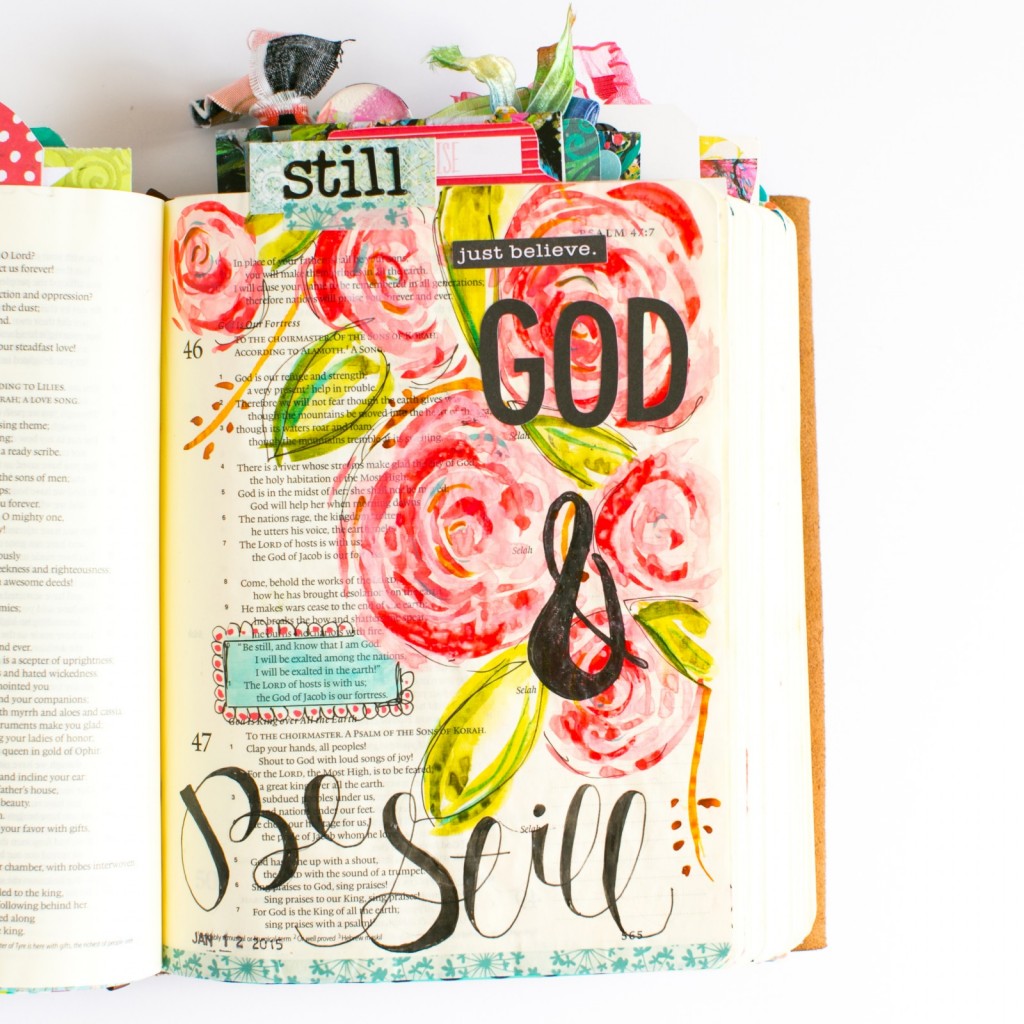 still
ISE
O Lord?
ct us forever!
ction and oppression?
the dust;
nd.
our steadfast love!
DING TO LILIES.
RAH; A LOVE SONG.
sing theme;
ng;
a ready scribe.
the sons of men;
ps;
u forever.
O mighty one,
y!
ously
eekness and righteousness;
awesome deeds!
mies;
nd ever.
is a scepter of uprightness;
s and hated wickedness.
nointed you
nd your companions;
th myrrh and aloes and cassia.
truments make you glad;
g your ladies of honor;
queen in gold of Ophir.
and incline your ear
father's house,
beauty.
n.
your favor with gifts,
r chamber, with robes interwoven
led to the king,
following behind her
ed along
king.
of Tyre is here with gifts, the richest of people
PSALM 47:7
just believe.
GOD
In place of your fathers shall be your sons;
you will make them princes in all the earth.
I will cause your name to be remembered in all generations;
therefore nations will praise you forever and ever.
God Is Our Fortress
46
TO THE CHOIRMASTER. OF THE SONS OF KORAH.
ACCORDING TO ALAMOTH. A SONG.
1 God is our refuge and strength,
a very present help in trouble.
2 Therefore we will not fear though the earth gives
though the mountains be moved into the heart of the
3 though its waters roar and foam,
though the mountains tremble at its
Selah
4 There is a river whose streams make glad the city of God,
the holy habitation of the Most High.
5 God is in the midst of her; she shall not be moved;
God will help her when morning dawns.
6 The nations rage, the kingdoms totter;
he utters his voice, the earth melts.
7 The LORD of hosts is with us;
the God of Jacob is our fo
Selah
&
8 Come, behold the works of the LORD,
how he has brought desolations on the earth.
9 He makes wars cease to the end of the earth;
he breaks the bow and shatters the spear;
he burns the chariots with fire.
10 "Be still, and know that I am God.
I will be exalted among the nations,
I will be exalted in the earth!"
The LORD of hosts is with us;
the God of Jacob is our fortress.
Selah
God Is King over All the Earth
47
TO THE CHOIRMASTER. A PSALM OF THE SONS OF KORAH.
1 Clap your hands, all peoples!
Shout to God with loud songs of joy!
For the LORD, the Most High, is to be feared,
a great king over all the earth.
3 He subdued peoples under us,
and nations under our feet.
He chose our heritage for us,
the pride of Jacob whom he lo
Selah
Be Still
5 God has gone up with a shout,
the LORD with the sound of a trumpet.
6 Sing praises to God, sing praises!
Sing praises to our King, sing praises!
7 For God is the King of all the earth;
sing praises with a psalm!
Probably a musical or liturgical term 2 Or well proved 3 Hebrew maskil
JAN 12 2015
565